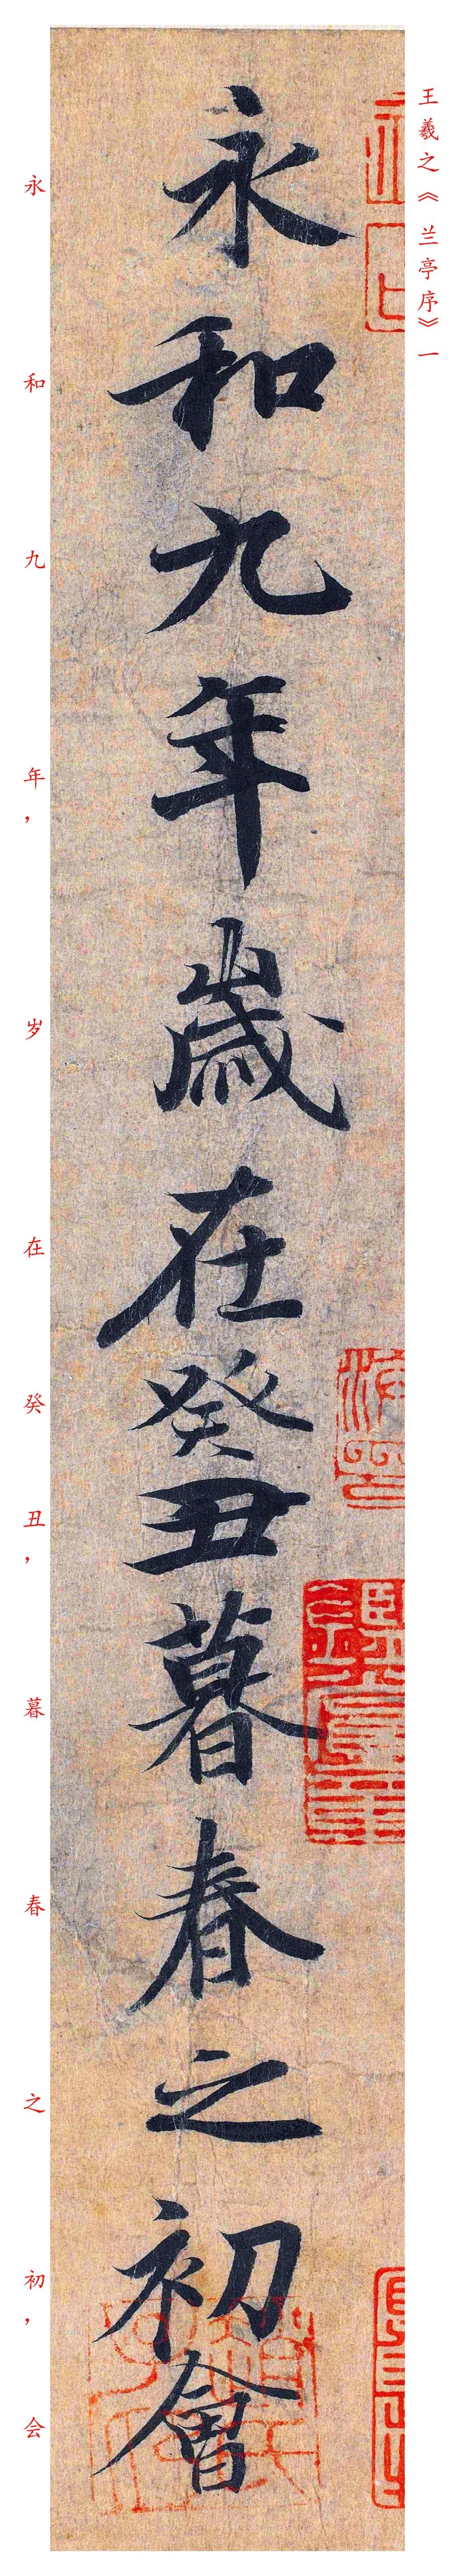 王羲之《兰亭序》一
永和九年歲在癸丑暮春之初會
永和九年，岁在癸丑，暮春之初，会